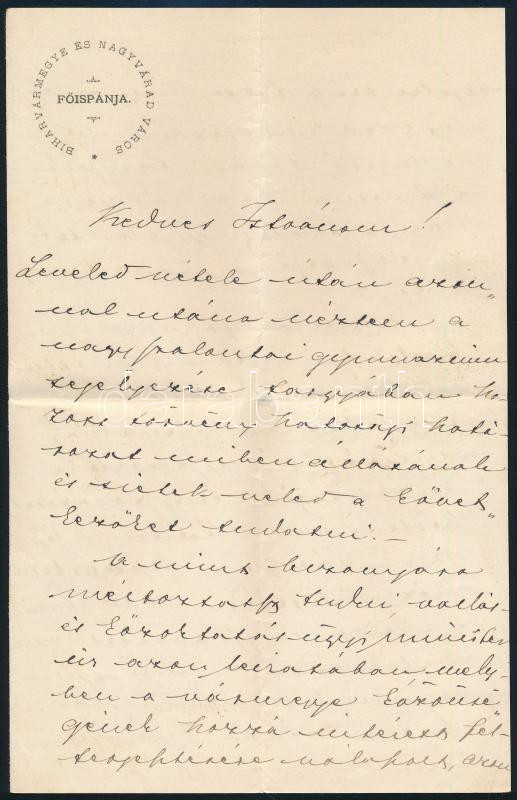 BIHARVÁRMEGYE ÉS NAGYVÁRAD VÁROS
FŐISPÁNJA.
Kedves Istvánom!
Leveled vétele után azon„
nal utána néztem a
nagyszalontai gymnazium
segélyezése tárgyában ho„
zott törvényhatósági hatá„
rozat miben állásának
és sietek veled a követ„
kezőket tudatni. –
A mint bizonyára
méltóztatsz tudni, vallás-
és közoktatásügyi miniszter
úr azon leiratában mely„
ben a vármegye közönsé„
gének hozzá intézett fel„
terjesztésére válaszolt, azon
darabanth